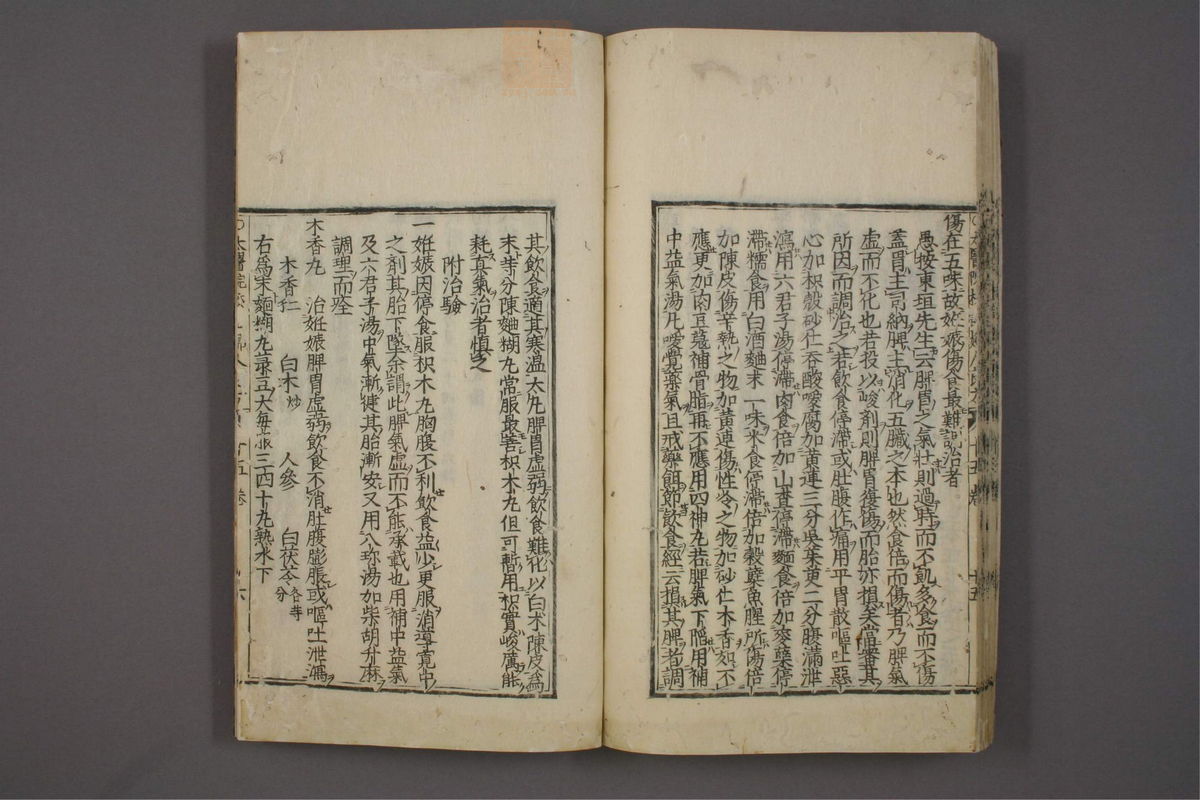 傷在五味故妊娠傷食最難調治者
愚按東垣先生云脾胃之氣壯則過時而不飢多食而不傷
蓋胃主司納脾主消化五臟之本也然食倍而傷者乃脾氣
虛而不化也若投以峻剤則脾胃復傷而胎亦損矣當審其
所因而調治之若飲食停滯或肚腹作痛用平胃散嘔吐惡
心加枳殼砂仁吞酸噯腐加黃連三分吳茱萸二分腹滿泄
瀉用六君子湯停滯肉食倍加山查停滯麵食倍加麥蘖停
滯糯食用白酒麯末一味米食停滯倍加穀蘖魚腥所傷倍
加陳皮傷辛熱之物加黃連傷性冷之物加砂仁木香如不
應更加肉豆蔻補骨脂再不應用四神丸若脾氣下陷用補
中益氣湯凡噯覺藥氣且戒藥餌節飲食經云損其脾者調
其飲食適其寒溫大凡脾胃虛弱飲食難化以白朮陳皮爲
末等分陳麯糊丸常服最善枳朮丸但可暫用枳實峻厲能
耗真氣治者慎之
附治驗
一妊娠因停食服枳朮丸胸腹不利飲食益少更服消導寬中
之剤其胎下墜余謂此脾氣虛而不能承載也用補中益氣
及六君子湯中氣漸健其胎漸安又用八珍湯加柴胡升麻
調理而痊
木香丸 治妊娠脾胃虛弱飲食不消肚腹膨脹或嘔吐泄瀉
木香仁 白朮炒 人參 白茯苓各等分
右爲末麵糊丸菉豆大每服三四十丸熟水下
十五卷